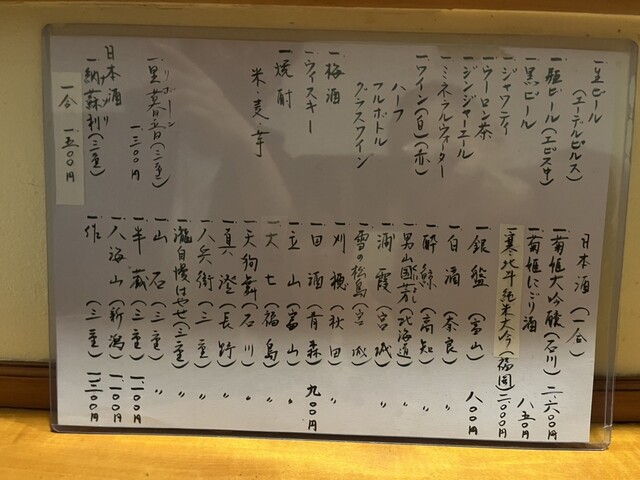 一生ビール
(エーデルピルス)
一瓶ビール(エビス中)
一黒ビール
一ジャワティ
一ウーロン茶
一ジンジャーエール
一ミネラルウォーター
一ワイン(白)(赤)
ハーフ
フルボトル
グラスワイン
一梅酒
一ウィスキー
一焼酎
米・麦・芋
リボーン
一黒暮音(三重)
一、三〇〇円
日本酒
一納蘇利(三重)
ナソリ
一合 一、五〇〇円
日本酒(一合)
一菊姫大吟醸(石川)二、六〇〇円
一菊姫にごり酒 八五〇円
一寒北斗純米大吟(福岡)二、〇〇〇円
一銀盤(富山)八〇〇円
一白滴(奈良)〃
一酔鯨(高知)〃
一男山国芳乃(北海道)
一浦霞(宮城)〃
一雪の松島(宮城
一刈穂(秋田
一田酒(青森 九〇〇円
一立山(富山)〃
一大七(福島)〃
一天狗舞(石川)〃
一真澄(長野)〃
一八兵衛(三重)〃
一瀧自慢はやせ(三重)〃
一山石(三重)〃
一半蔵(三重)一、一〇〇円
一八海山(新潟)一、一〇〇円
一作(三重)一、三〇〇円